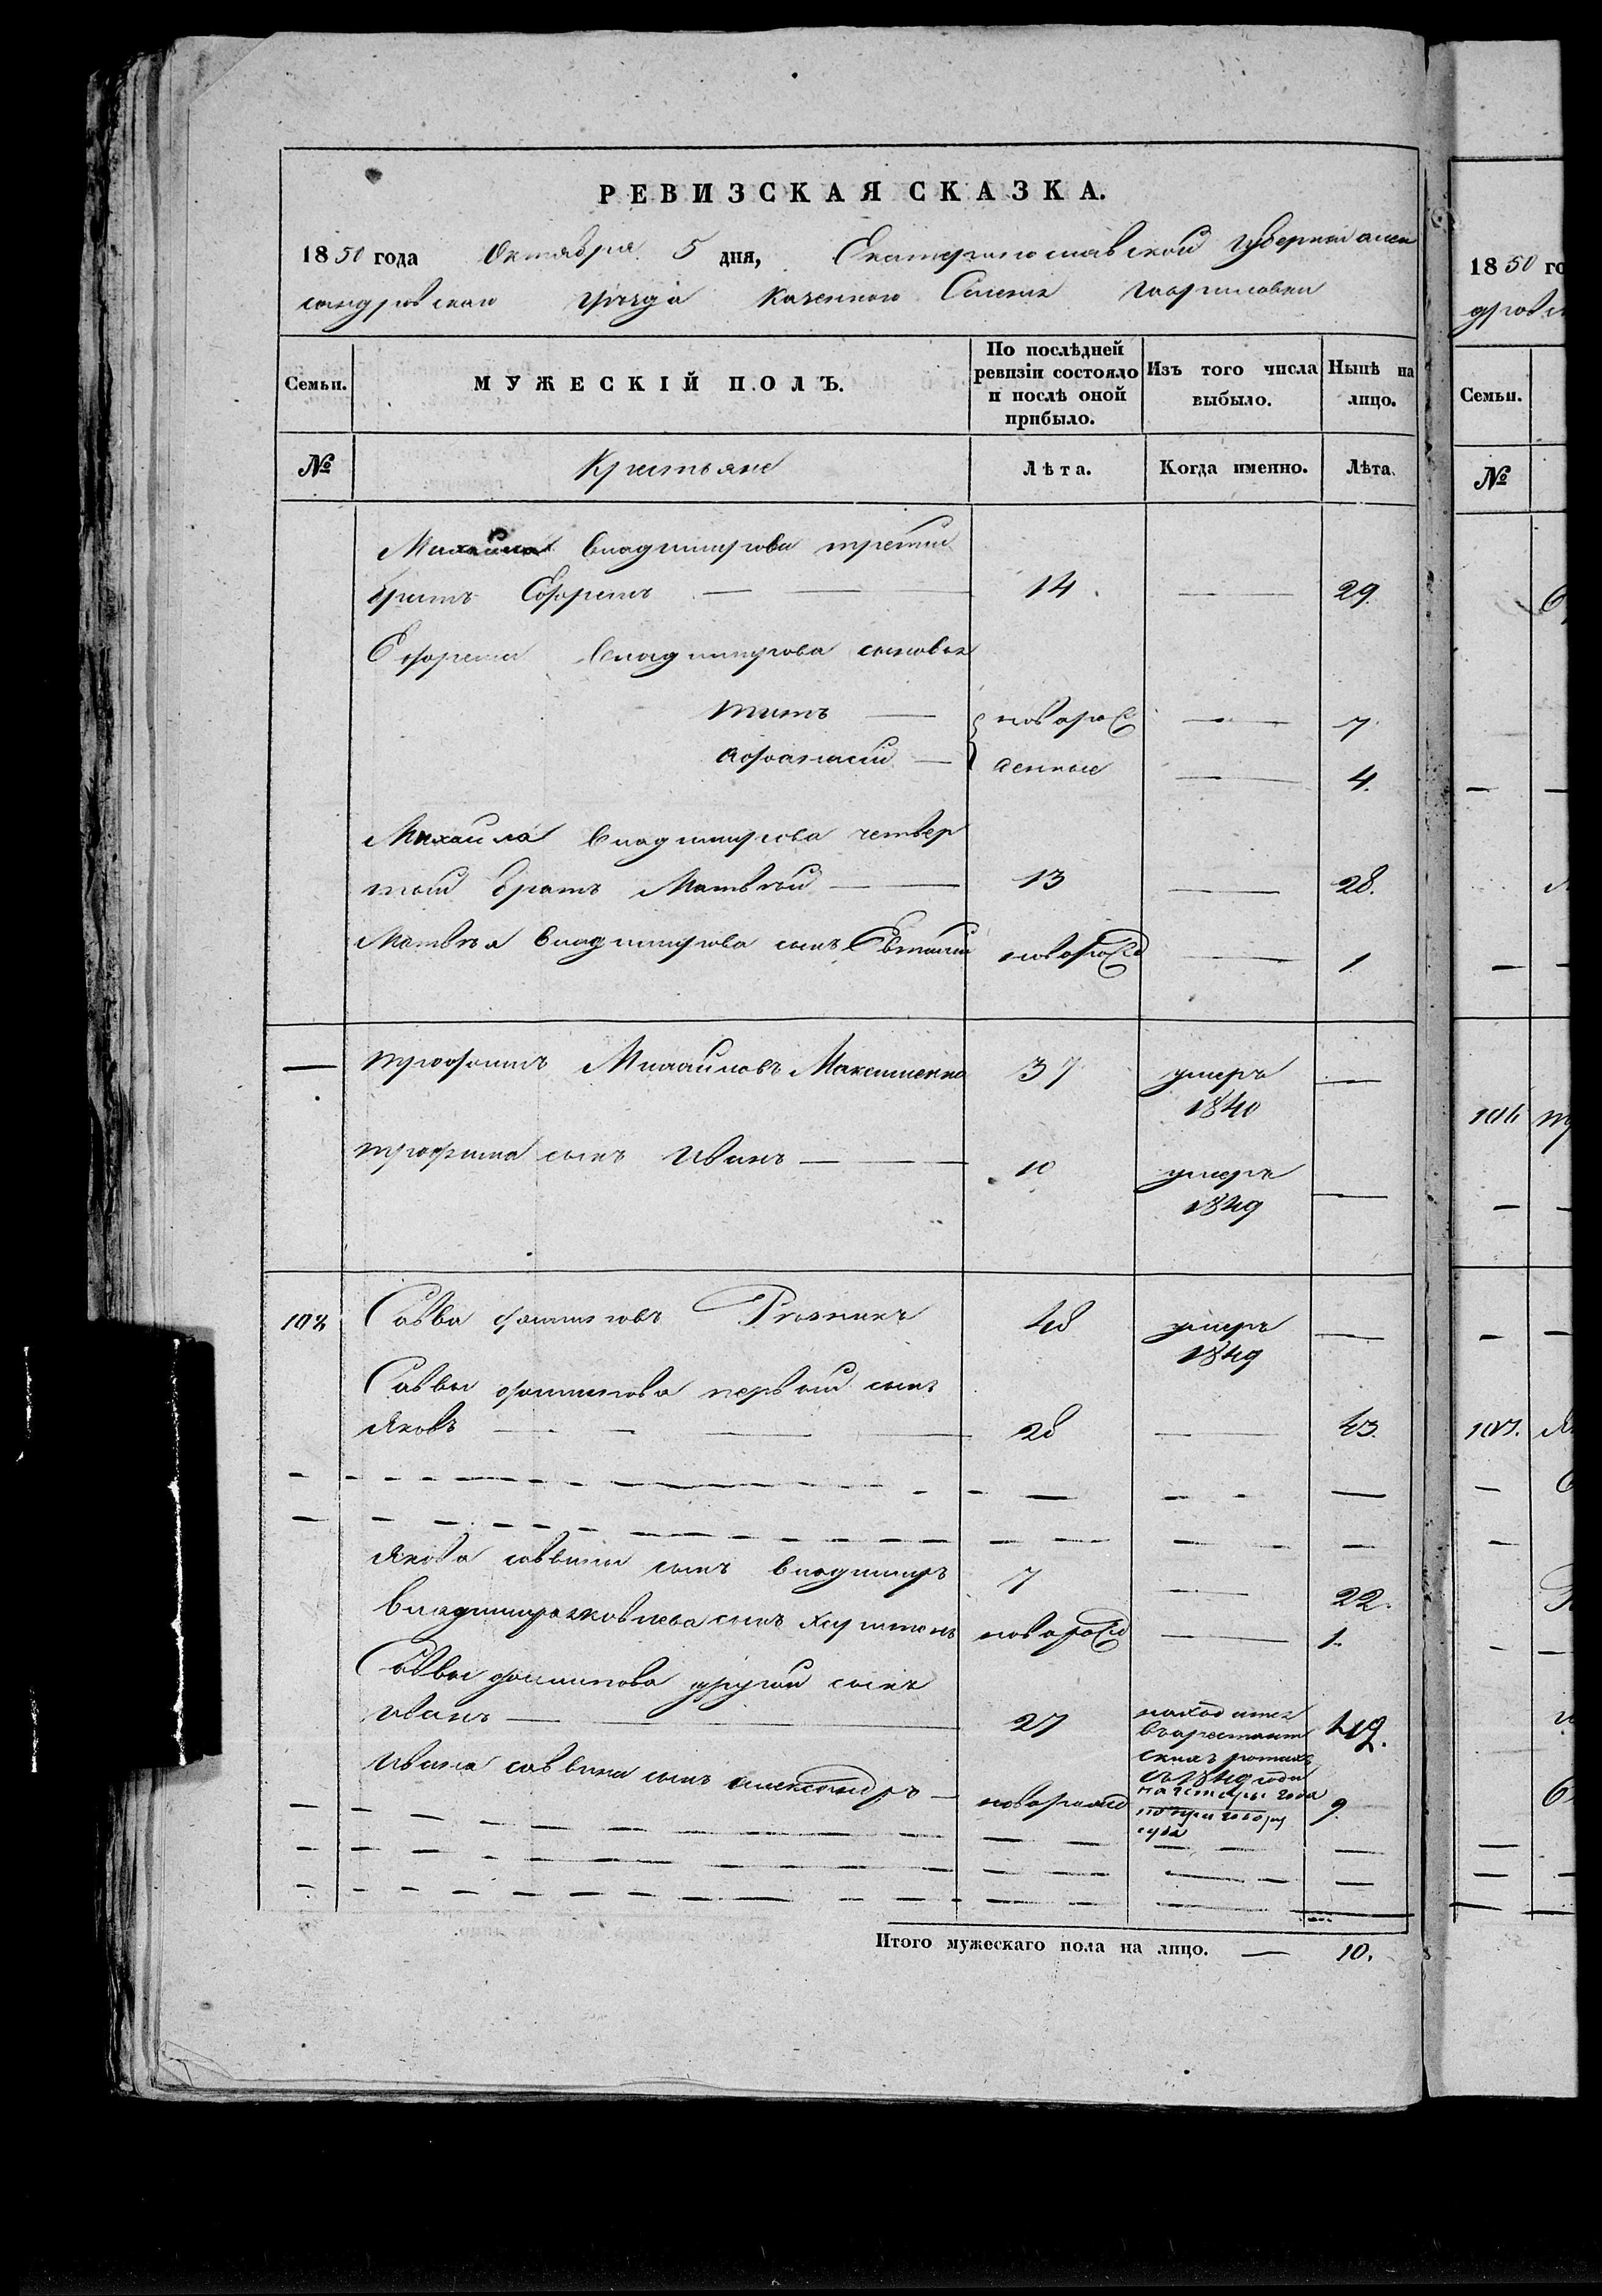 РЕВИЗСКАЯ СКАЗКА.
1850 года Октября 5 дня, Екатеринославской губернии Алек
сандровского уезда казенного Селения Гавриловки
Семьи. МУЖЕСКІЙ ПОЛЪ. По послѣдней ревизіи состояло и послѣ оной прибыло. Изъ того числа выбыло. Нынѣ на лицо.
№ Крестьяне Лѣта. Когда именно. Лѣта.
Михайла Владимирова третий
братъ Ефремъ — — 14. — 29.
Ефрема Владимирова сыновья
Титъ — новорож — 7.
Афанасий — денные — 4.
Михаила Владимирова четвер
тый братъ Матвей — 13 — 28.
Матвея Владимирова сынъ Евтихий новорожд — 1
— Трофимъ Михайловъ Максименко 37 умеръ 1840 —
Трофима сынъ Иванъ — — 10 умеръ 1849 —
108 Савва Филиповъ 48 умеръ 1849 —
Саввы Филипова первый сынъ
Яковъ — — — — 28 — 43.
Якова Саввина сынъ Владимиръ 7 — 22.
Владимира Яковлева сынъ Харитонъ новорожд — 1.
Саввы Филипова другой сынъ
Иванъ — 27 находится въ арестант ских ротахъ съ 1849 года на четыре года по приговору суда 42.
Ивана Саввина сынъ Александръ — новорожд 9.
Итого мужескаго пола на лицо. — 10.
1850 го
Семьи.
№
106
107.